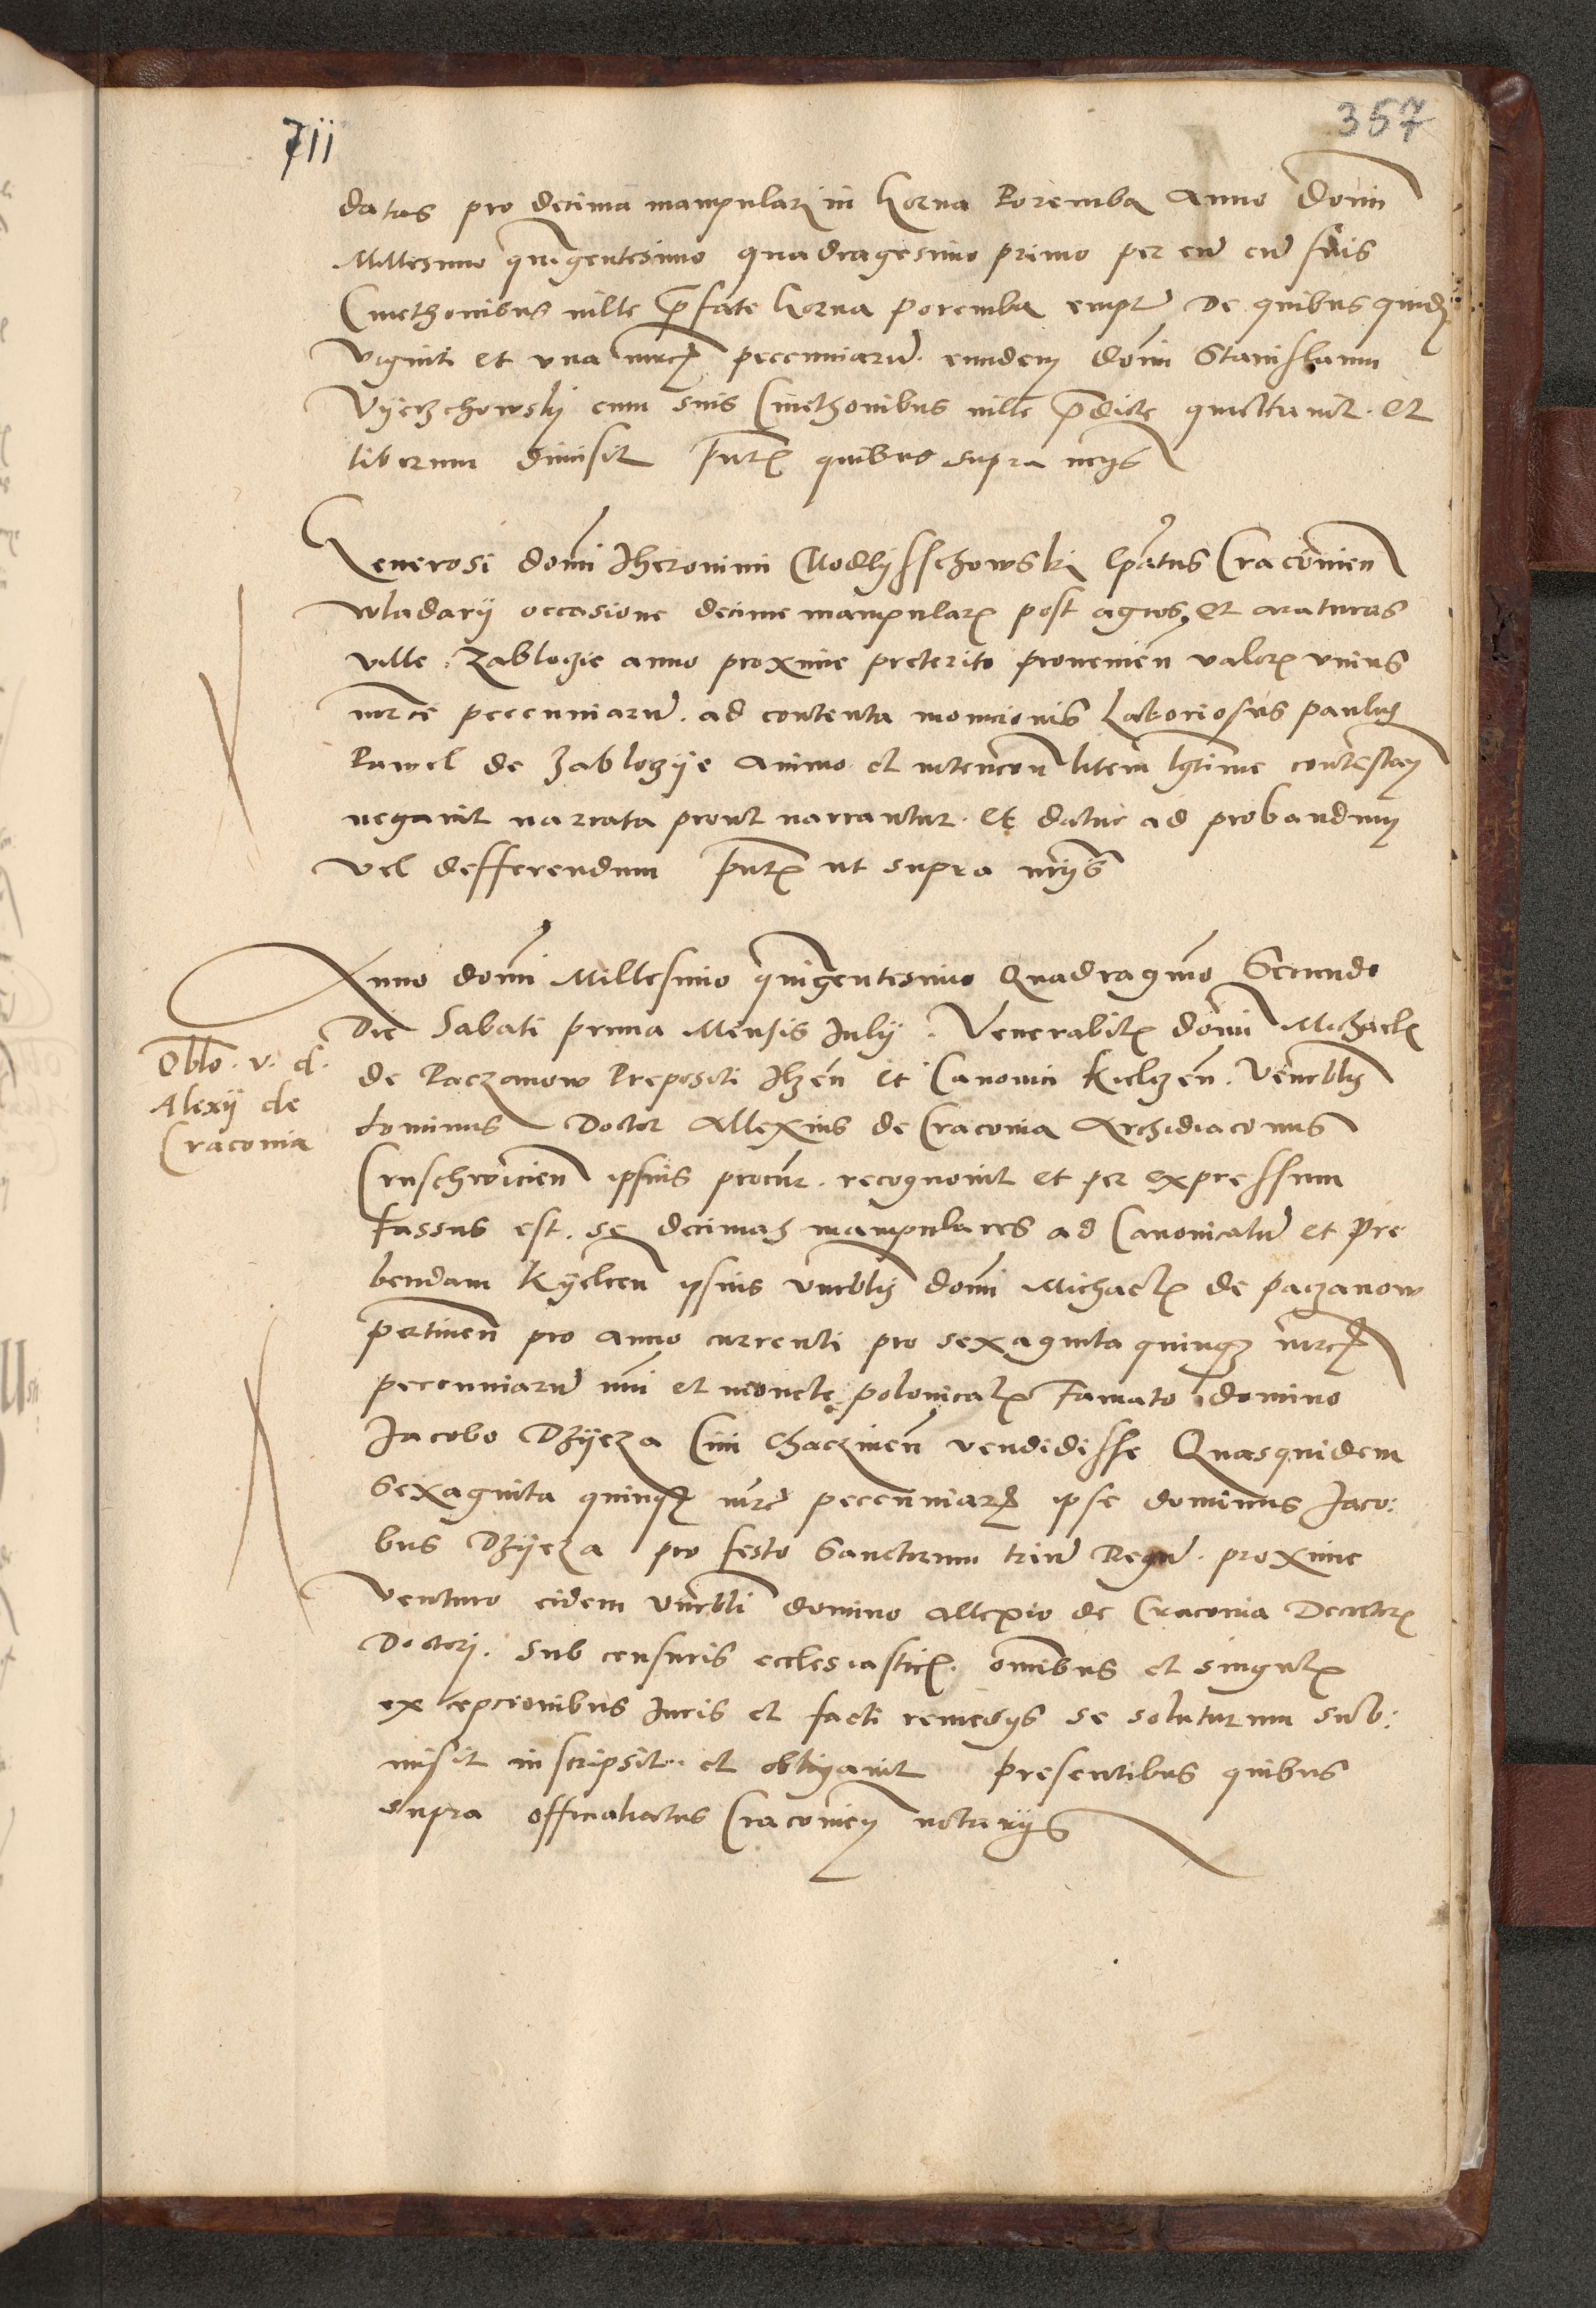 711
357
datas pro decima manipulari in horna Poremba Anno Domi
Millesimo quingentesimo quadragesimo primo per eum cum suis
Cmethonibus ville prefate horna Poremba empt De quibus quidem
viginti et una mrcis pecuniarum eundem domi Stanislaum
Vyerzchowsky cum suis Cmethonibus ville predicte quittavit et
liberum dimisit pntibus quibus supra
Generosi domi Iheronimi Modlyschowski Cracovien
wladarij occasione decime manipularis post agros et araturas
ville Zablogie anno proxime preterito provenien valoris unius
mrce pecuniarum ad contenta monicionis Laboriosus paulus
Pawel de Zablozye animo et intencion litem legitime contestan
negavit narrata prout narrantur et datur ad probandum
vel defferendum pntibus ut supra
Anno domi Millesimo quingentesimo Quadragmo Secundo
Die Sabati prima Mensis Iuly Venerabilis domi Michaelis
de Paczanow Prepositi Ilzen et Canonici Kielczen Venerblis
dominus Doctor Allexius de Cracovia Archidiaconus
Cruschwicien ipsius procur recognovit et per expressum
fassus est se decimas manipulares ad Canonicatum et Pre
bendam Kyelcen ipsius venerblis domi Michaelis de paczanow
pertinen pro anno currenti pro sexaginta quinque mrcis
pecuniarum nui et monete polonicalis Famato domino
Iacobo Dzyeza Civi Chaczinen vendidisse Quasquidem
Sexaginta quinque mrc pecuniarum ipse dominus Iaco:
bus Dzyeza pro festo Sanctorum trium Regum proxime
venturo eidem venerbli domino Allexio de Cracovia Decretorum
Doctori sub censuris ecclesiasticis omnibus et singulis
excepcionibus Iuris et facti remedys se soluturum sub:
misit inscripsit et obligavit presentibus quibus
supra officialiatus Cracovien notarys
Oblo. v. d.
Alexij de
Cracovia